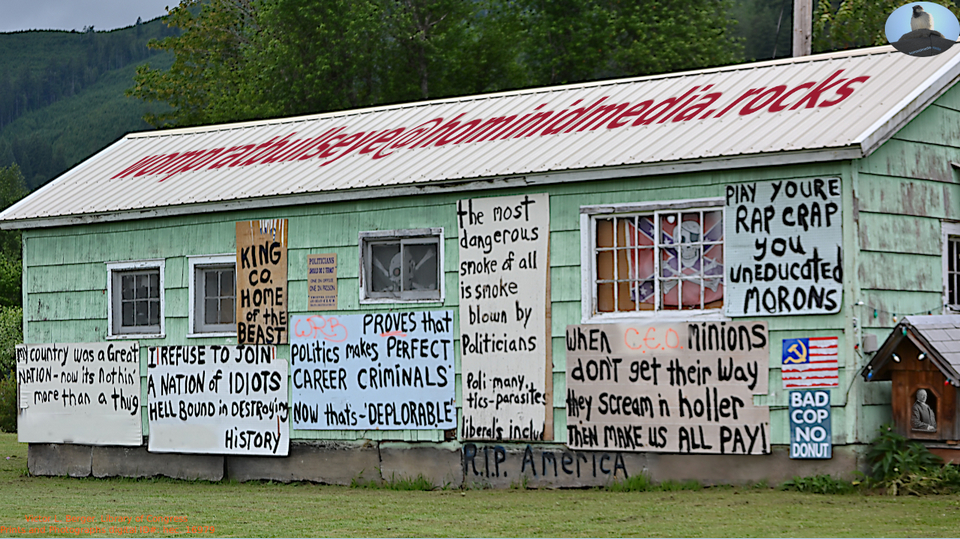 wompratbullseye@hominidmedia.rocks
KING
CO.
HOME
OF the
BEAST
POLITICIANS
the most
dangerous
smoke of all
is smoke
blown by
Politicians
Poli-many
tics-parasites
liberals inclu
PlAY YOURE
RAP CRAP
you
unEducatEd
MORONS
My country was a Great
NATION-now its nothin'
more than a thug
I REFUSE TO JOIN
A NATION of IDIOTS
HELL BOUND in DESTROYing
HISTORY
PROVES that
Politics makes PERFECT
CAREER CRIMINALS
NOW thats-'DEPLORABLE'
WHEN C.E.O. Minions
don't get their way
they scream n holler
THEN MAKE US ALL PAY!
BAD
COP
NO
DONUT
R.I.P. America